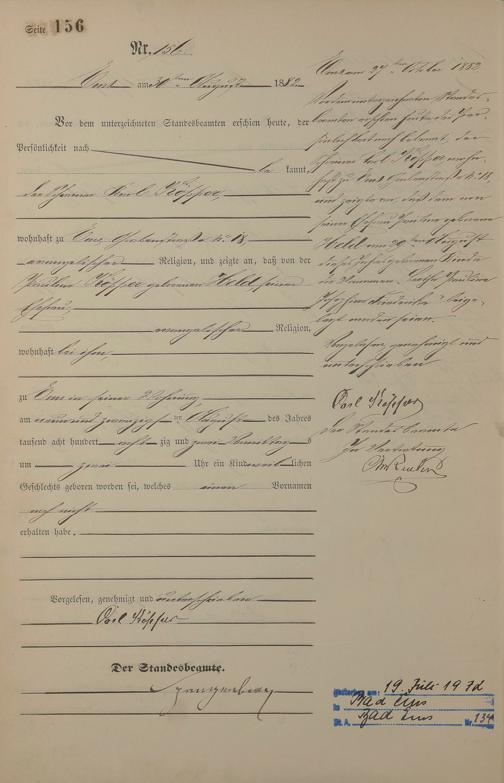 Seite 156
Nr. 156.
Ems am 30ten August 1882
Vor dem unterzeichneten Standesbeamten erschien heute, der
Persönlichkeit nach
be kannt,
der Schreiner Carl Röpper,
wohnhaft zu Ems, Grabenstraße No 18,
evangelischer Religion, und zeigte an, daß von der
Röpper geborenen Held seiner
Ehefrau,
evangelischer Religion,
wohnhaft bei ihm,
zu Ems in seiner Wohnung,
am neun und zwanzigsten August des Jahres
tausend acht hundert acht zig und zwei
um Uhr ein Kind weiblichen
Geschlechts geboren worden sei, welches einen Vornamen
noch nicht
erhalten habe.
Vorgelesen, genehmigt und unterschrieben
Carl Röpper
Der Standesbeamte.
Spangenberg
Ems am 27ten Oktober 1882
Vor dem unterzeichneten Standes-
beamten erschien heute der Per-
sönlichkeit nach bekannt, der
Schreiner Carl Röpper, wohn-
haft zu Ems Grabenstraße No 18,
und zeigte an, daß dem von
seiner Ehefrau geborenen
Held am 29ten August
dieses Jahres geborenen Kinde
die Vornamen
beige-
legt worden seien.
Vorgelesen, genehmigt und
unterschrieben
Carl Röpper
Der Standesbeamte
In Vertretung
Gestorben am: 19. Juli 1972
in Bad Ems
St. A. Bad Ems Nr. 134